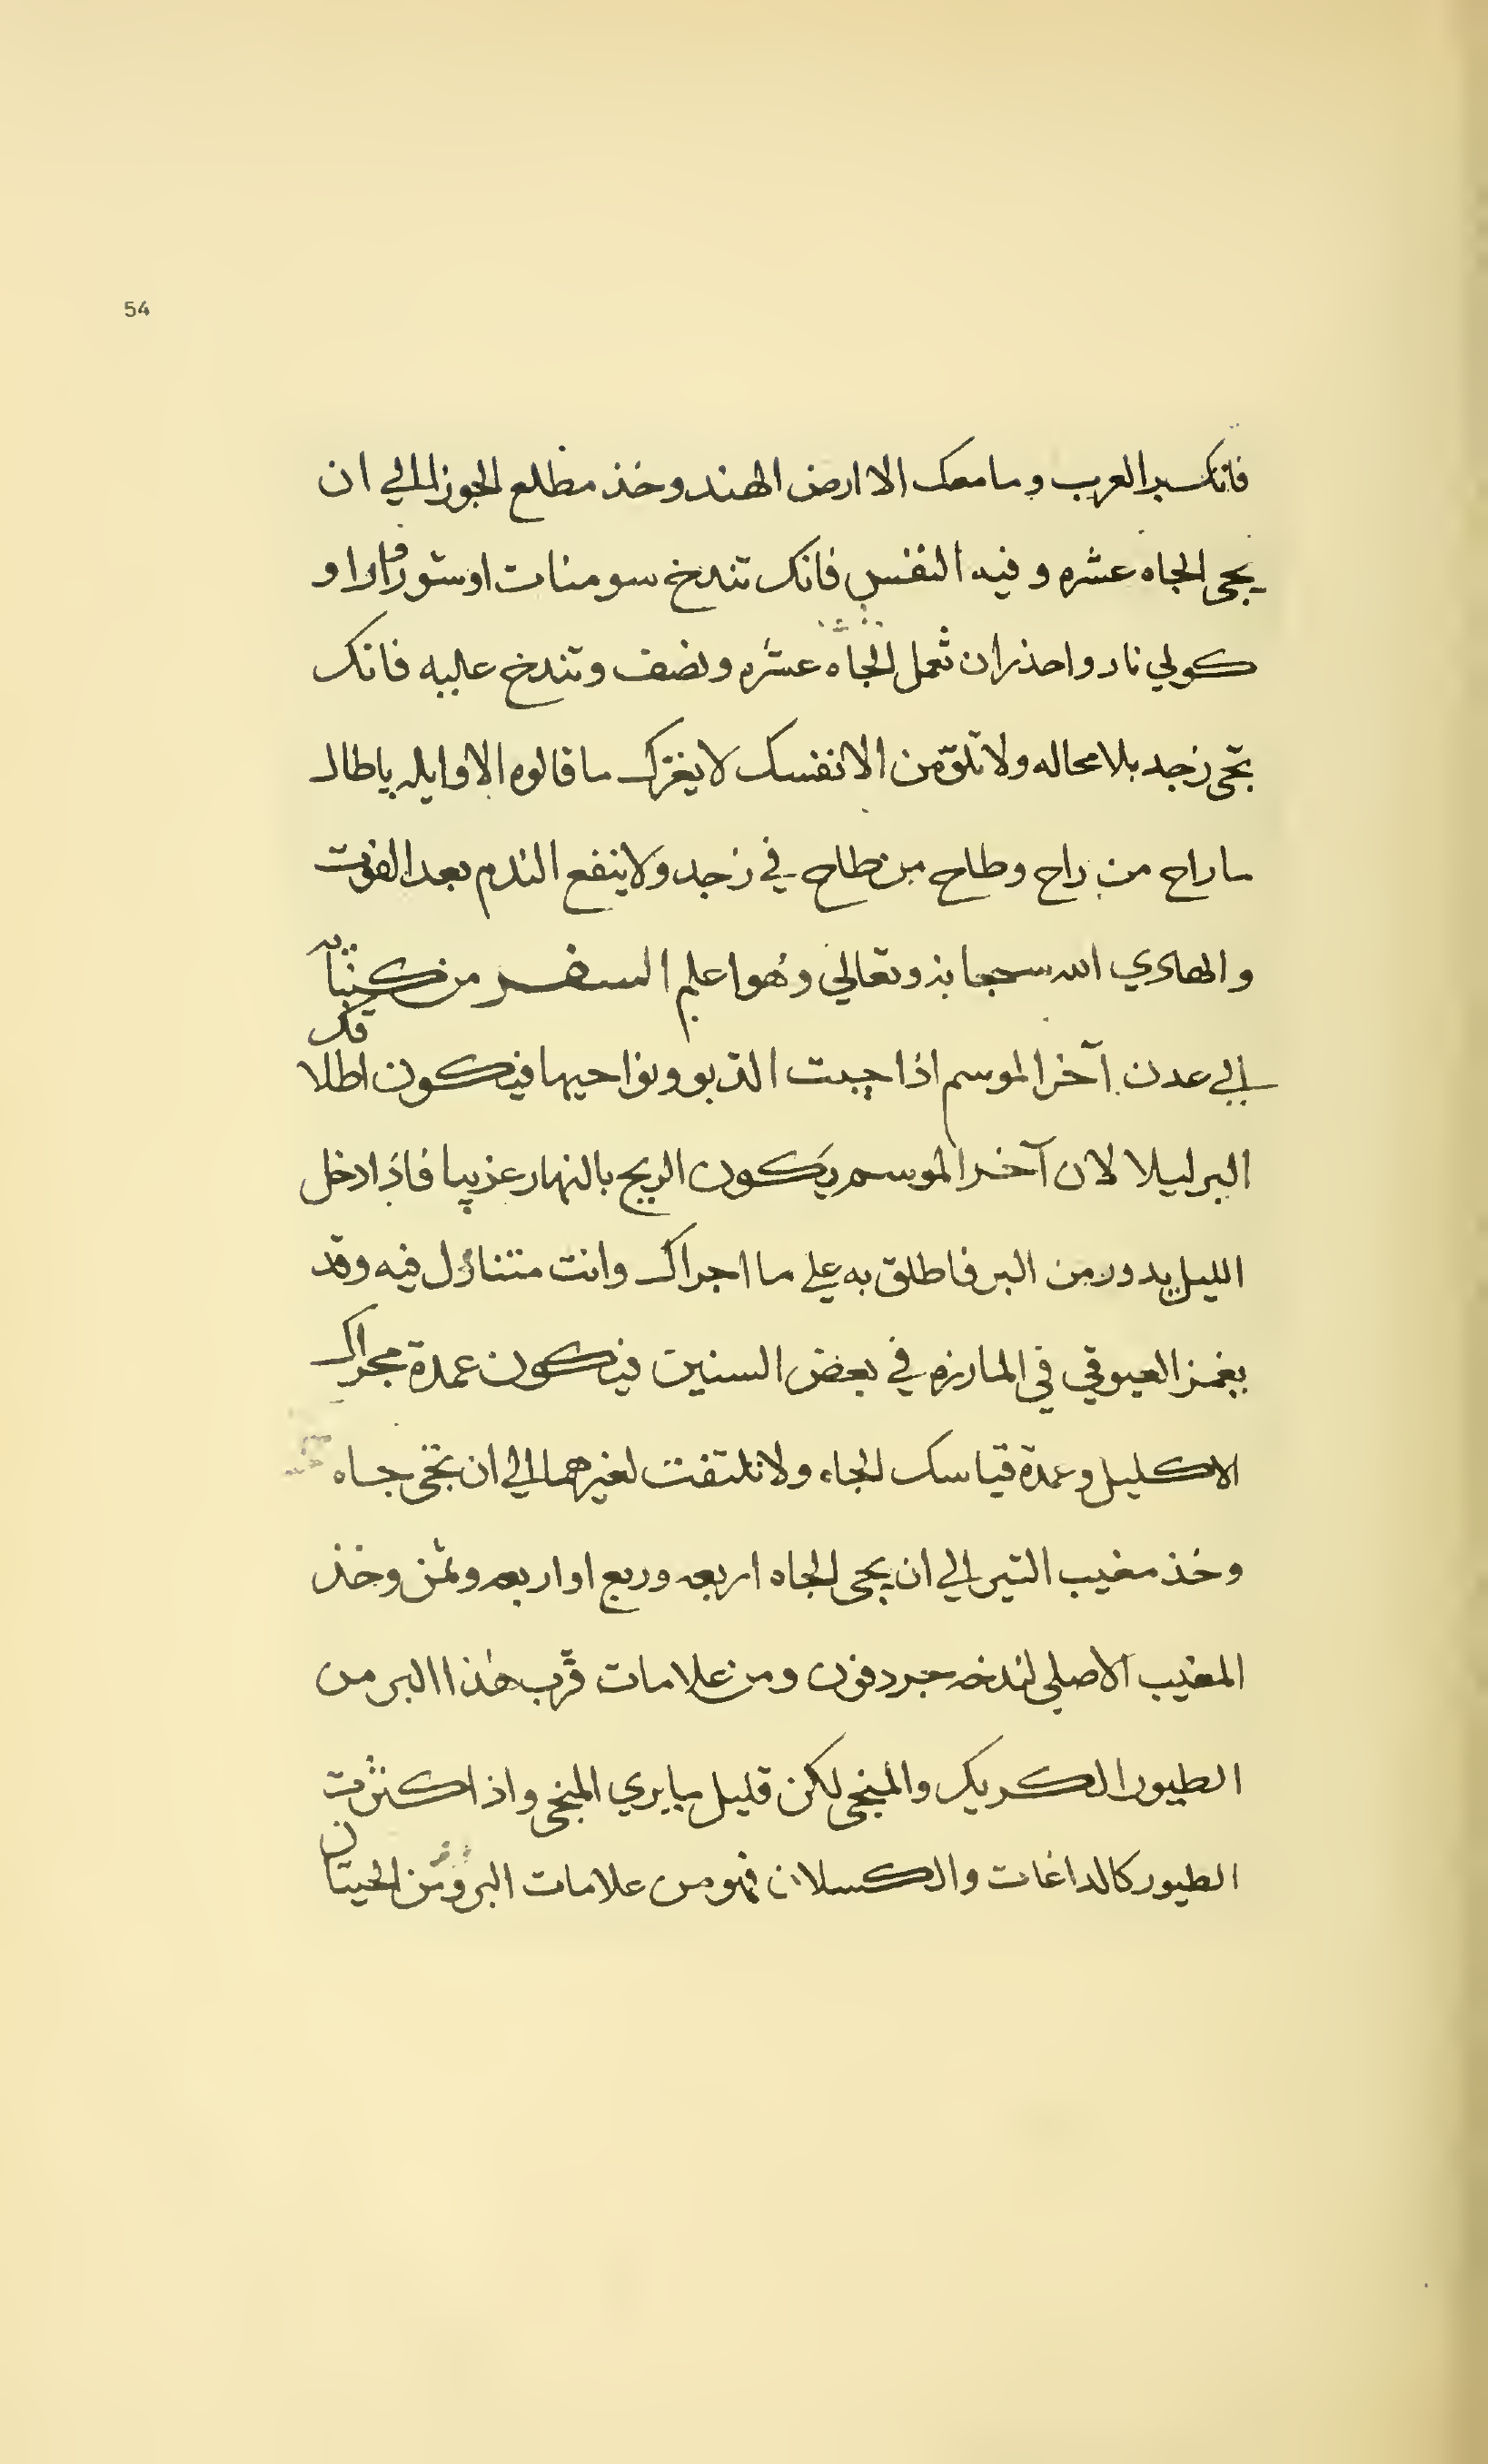 54
فانك ببر العرب وما معك الا ارض الهند وخذ مطلع الجوزا الي ان
يجي الجاه عشره وفيه النفس فانك تندخ سومنات او ستوراوارا و
كولي نار واحذر ان تعمل الجاه عشره ونصف وتندخ عليه فانك
تجي زجد بلا محاله ولا تلق من الا نفسك لا يغرّك ما قالوه الاوايله ياطال
ما راح من راح وطاح من طاح في زجد ولا ينفع الندم بعد الفوت
والهادي الله سبحانه وتعالي وهو اعلم السفر من كنبايه
الي عدن آخر الموسم اذا جيت الذيو ونواحيها فيكون اطلاقك
البر ليلا لان آخر الموسم يكون الريح بالنهار عزيبا فاذا دخل
الليل يدور من البر فاطلق به علي ما اجراك وانت متناول فيه وقد
يغمز العيوقي في المارزه في بعض السنين فيكون عمدة مجراك
الاكليل وعمدة قياسك الجاه ولا تلتفت لغيرهما الي ان تجي جاه
وخذ مغيب التير الي ان يجي الجاه اربعه وربع او اربعه وثمن وخذ
المغيب الاصلي لندخه جردفون ومن علامات قرب هذا البر من
الطيور الكريك والمنجي لكن قليل ما يري المنجي واذا كثرت
الطيور كالداغات والكسلان فهو من علامات البر ومن الحيتان